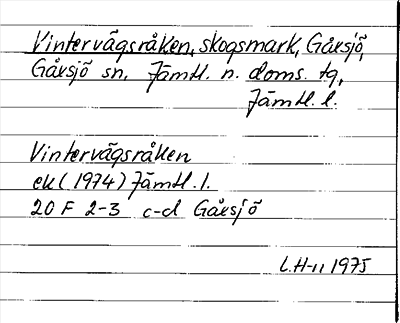 Vintervägsråken, skogsmark, Gåxsjö,
Gåxsjö sn. Jämtl. n. doms. tg,
Jämtl. l.
Vintervägsråken
ek (1974) Jämtl. l.
20 F 2-3 c-d Gåxsjö
L.H-n 1975